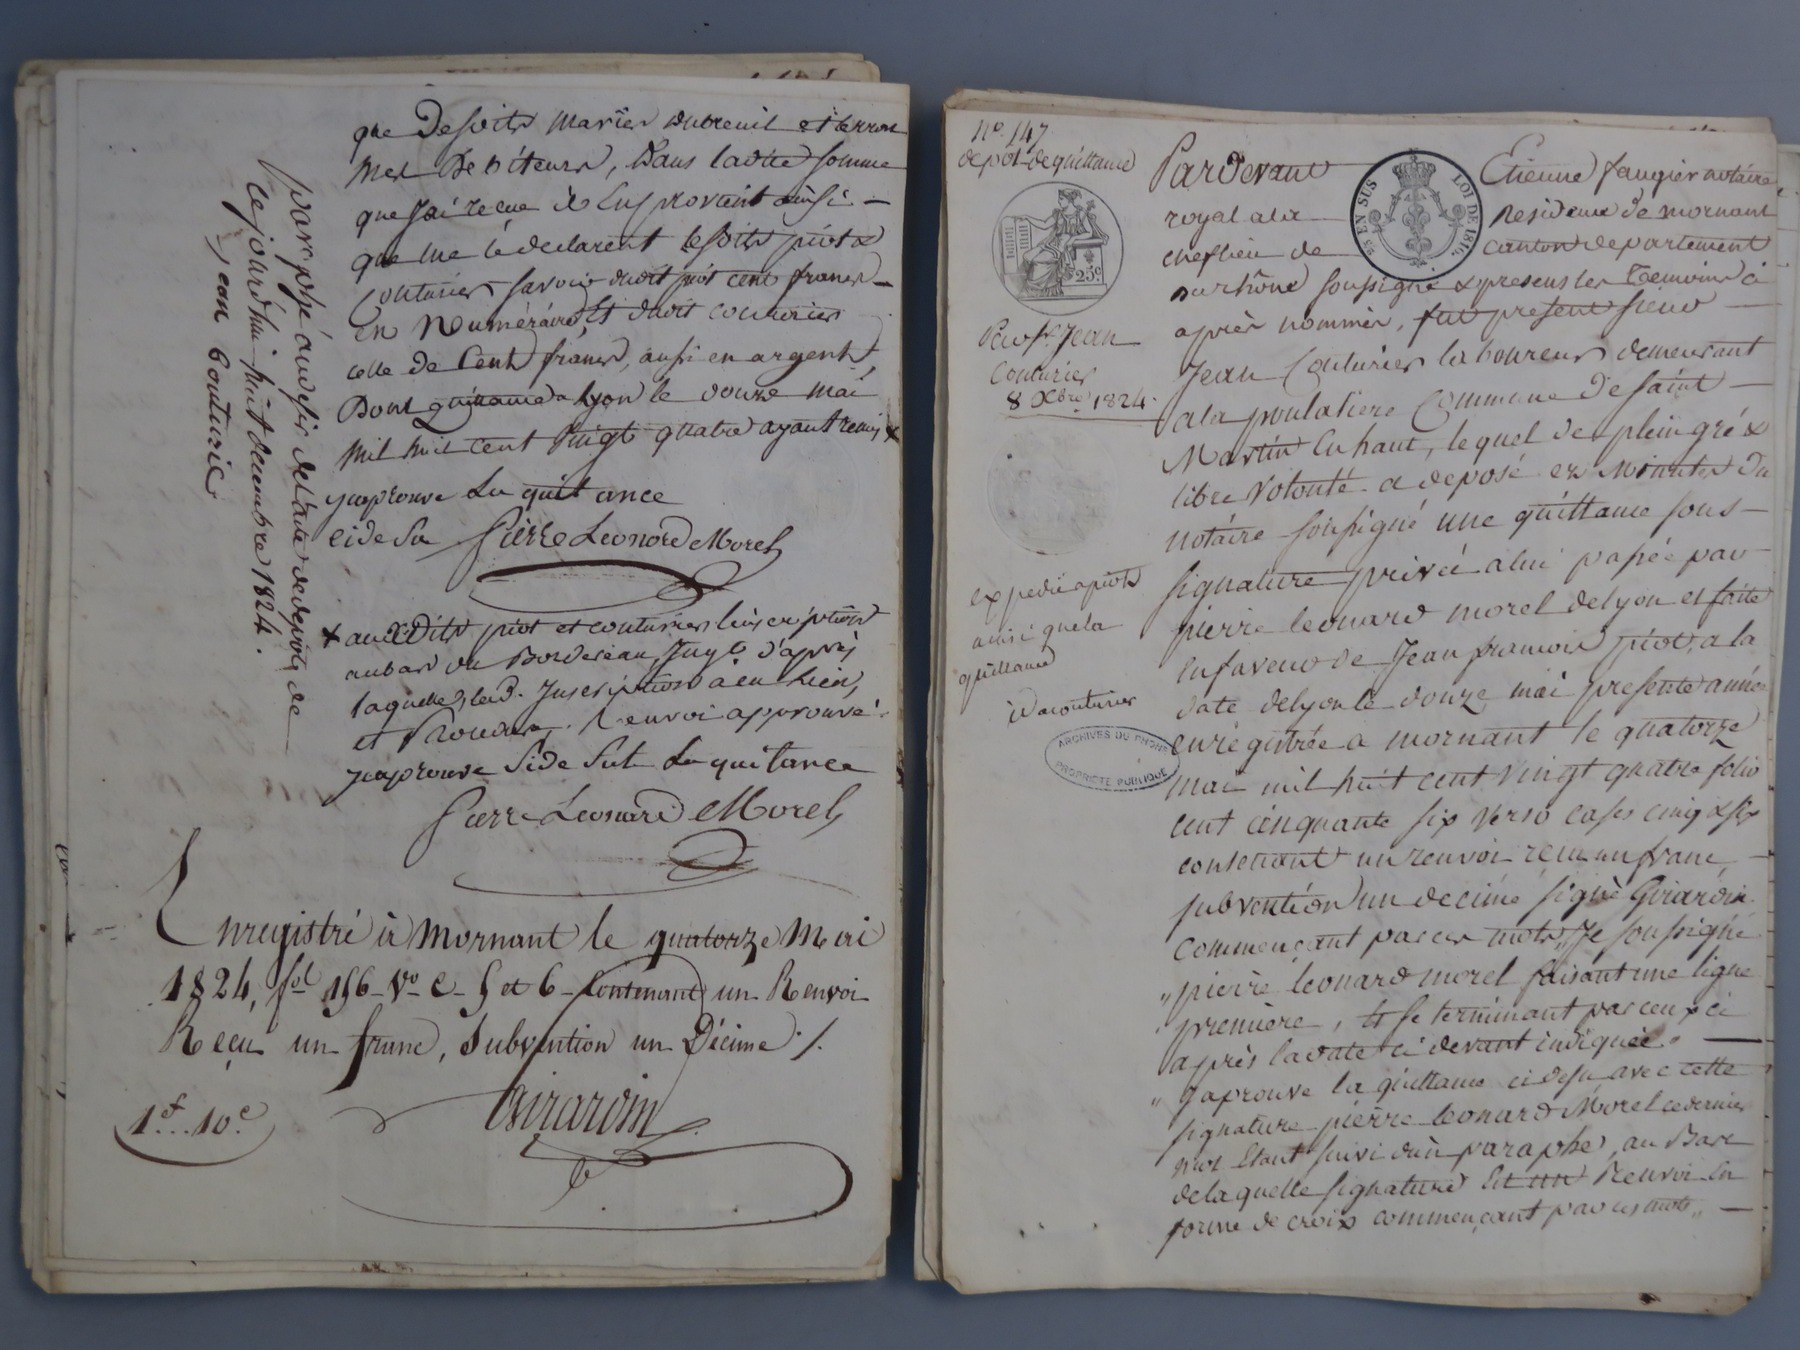 que Desdits mariés dubreuil et terron
mes Debiteurs, Dans ladite somme
que jai recue & Lus provant ainsi —
que me le declarent lesdits piot &
Couturier savoir dudit piot cent francs —
En Numéraire, Et dudit couturier
celle de Cent francs, aussi en argent,
Dont quittance a lyon le douze mai
mil huit cent vingt quatre ayant remis x
japrouve La quittance
ci de Su Pierre Leonord Morel
x auxDits piot et couturier linscription
au bas du Bordereau, Juge d'après
laquelle, led. Inscription a eu Lieu,
et . Renvoi approuvé.
japrouve Side Sut La quitance
Pierre Leonard Morel
Enregistré à Mornant le quatorze Mai
1824, fol 156 Vo C. 5 et 6 Contenant un Renvoi
Reçu un franc, Subvention un Décime ./.
1f.. 10c
Girardin
paraphé au desir de l'acte de depot de
ce jourd'hui huit decembre 1824.
jean Couturier
No. 147
depot de quittance
25c
Pour Sr. Jean
Couturier
8 Xbre 1824.
expedié a piot
ainsi que la
quittance
id a couturier
ARCHIVES DU RHONE
PROPRIÉTÉ PUBLIQUE
EN SUS
LOI DE 1816.
Pardevant Etienne faugier notaire
royal a la Residence de mornant
cheflieu de canton departement
du rhône soussigné & presens les Temoins ci
après nommés, fut present sieur —
Jean Couturier laboureur demeurant
a la poulatiere Commune De Saint —
Martin En haut, lequel de plein gré &
libre Volonté a deposé ez Minutes du
notaire soussigné une quittance sous —
signature privée a lui passée par —
pierre leonard morel de lyon et faite
En faveur de Jean francois piot, a la
date de lyon le douze mai presente année
enregistrée a mornant le quatorze
mai mil huit cent vingt quatre folio
cent cinquante six verso cases cinq & six
contenant un renvoi recu un franc —
subvention un decime signé Girardin.
Commençant par ces mots „Je soussigné
„pierre leonard morel faisant une ligne
première, Et se terminant par ceux ci
après la date ci devant indiquée. —
„Japrouve la quittance ci dessu avec cette
signature pierre leonard Morel ce dernier
mot Etant suivi d'un paraphe, au Bas
de laquelle signature Est un Renvoi En
forme de croix commençant par ces mots „ —